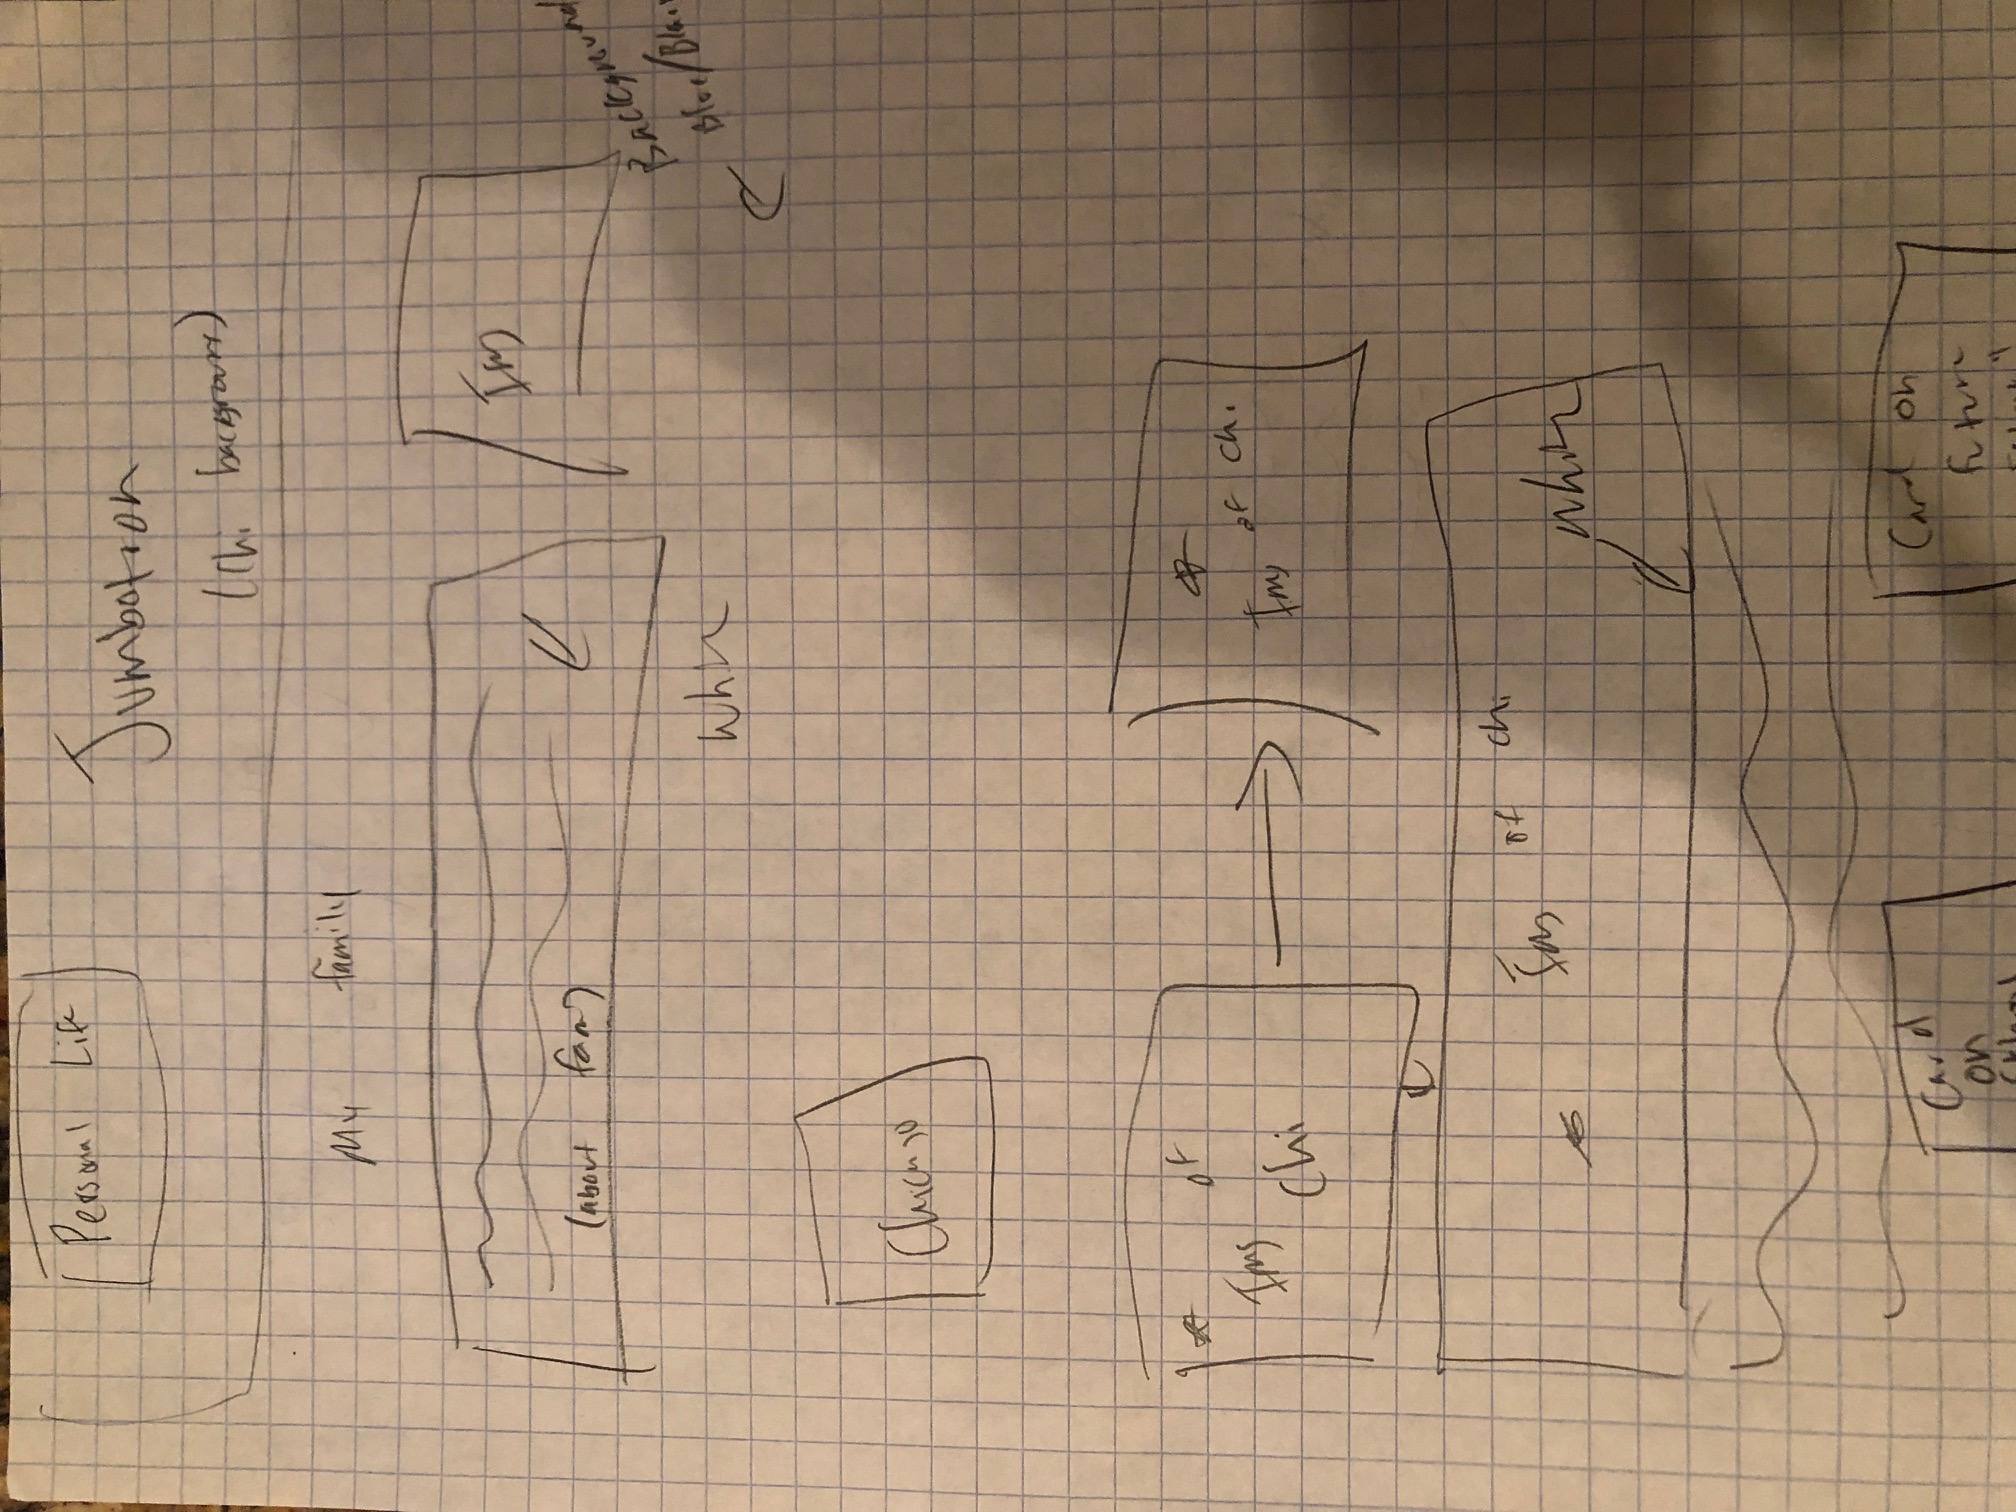 Personal Life
Jumbotron
(Chi background)
My family
Img
(about fam)
Background
Blue/Blac
White
Chicago
Img of
Chi
Img of Chi.
Img of Chi
White
Card
on
School
Card on
future